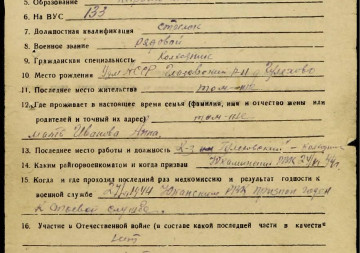 5. Образование
6. На ВУС 133
7. Должностная квалификация стрелок
8. Военное звание рядовой
9. Гражданская специальность колхозник
10. Место рождения УдмАССР Глазовский р-н д.
11. Последнее место жительства там-же
12. Где проживает в настоящее время семья (фамилия, имя и отчество жены или
родителей и точный их адрес) там-же
мать Иванова Анна,
13. Последнее место работы и должность к-з
14. Каким райгорвоенкоматом и когда призван РВК
15. Когда и где проходил раз медкомиссию и результат годности к
военной службе 1944 РВК признан годен
к строевой службе
16. Участие в Отечественной войне (в составе какой последней части в качестве
нет